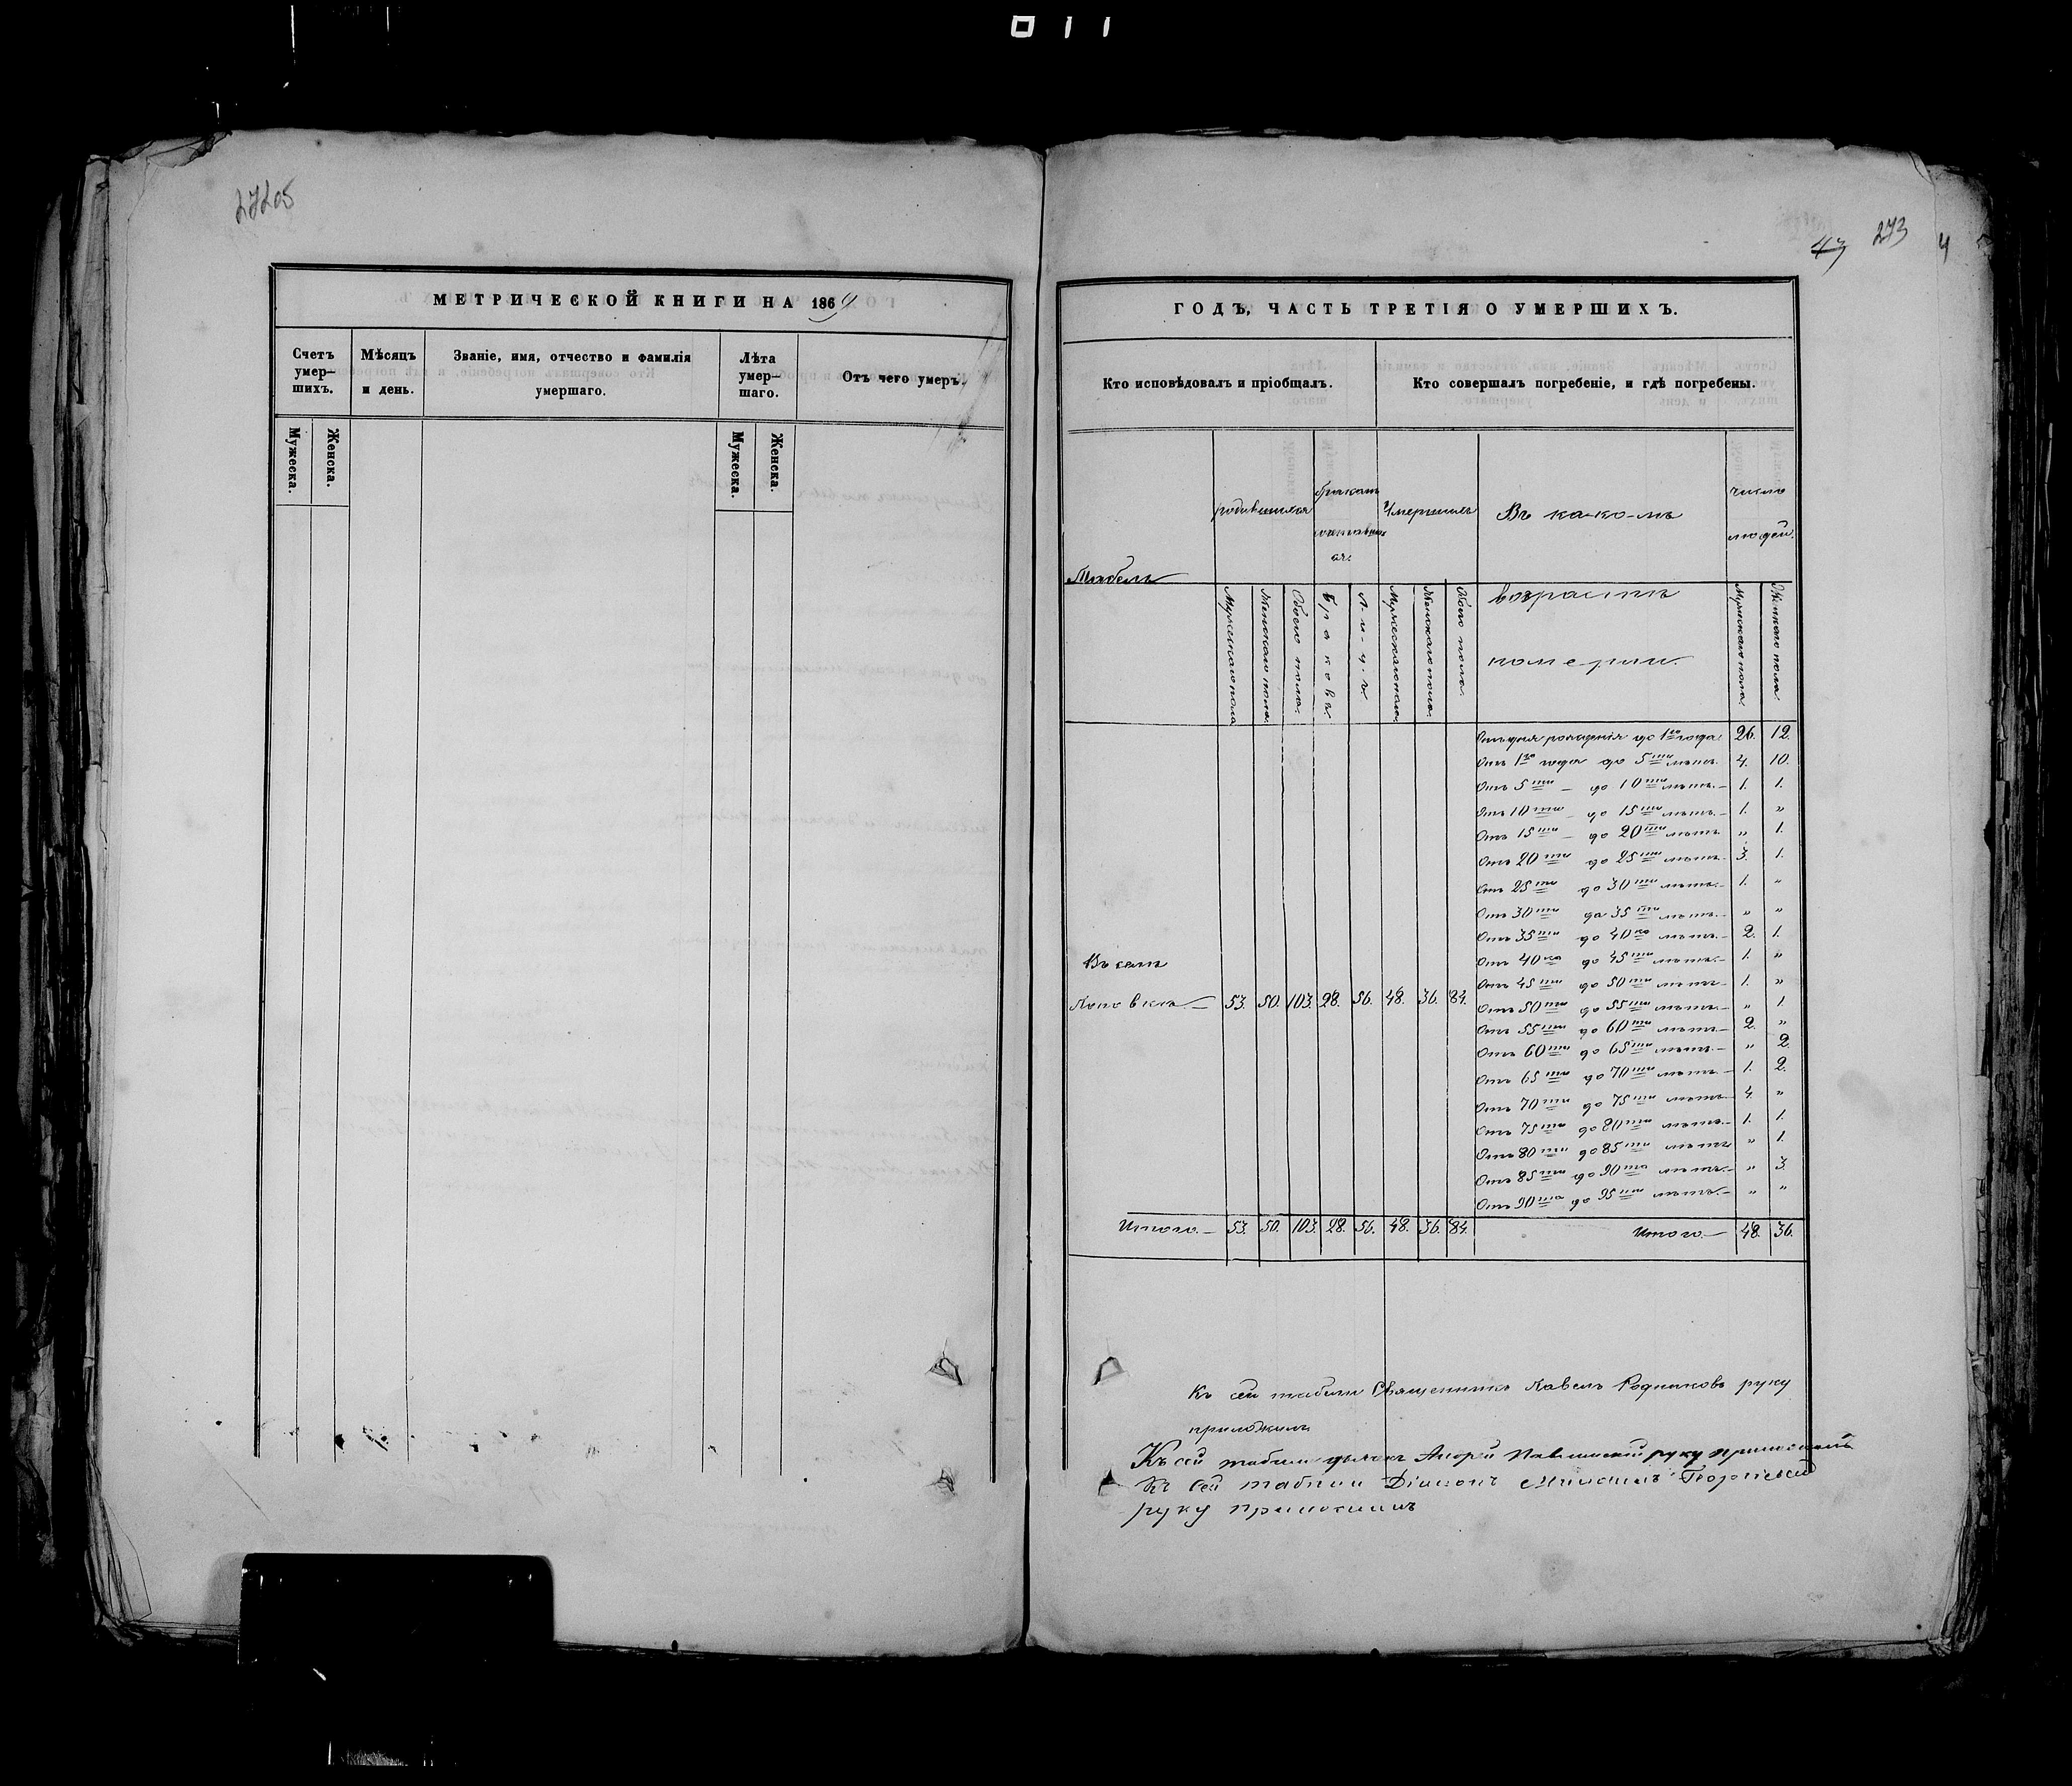 011
27205
МЕТРИЧЕСКОЙ КНИГИ НА 1869
Счетъ умер-шихъ.
Мѣсяцъ и день.
Званіе, имя, отчество и фамилія умершаго.
Лѣта умер-шаго.
Отъ чего умеръ.
Мужеска.
Женска.
Мужеска.
Женска.
47 273 4
ГОДЪ, ЧАСТЬ ТРЕТІЯ О УМЕРШИХЪ.
Кто исповѣдовалъ и пріобщалъ.
Кто совершалъ погребеніе, и гдѣ погребены.
Табель
родившихся
бракомъ
Умершихъ
Въ ка-ко-мъ
возрастѣ
померли.
число
людей.
Мужескаго пола
Женскаго пола.
Обоего пола.
Браковъ
Л-и-ц-ъ.
Мужескаго пола.
Женскаго пола.
Обоего пола.
Мужескаго пола.
Женскаго пола.
Отъ дня рожденія до 1го года. 26. 12.
Отъ 1го года до 5ти лѣтъ. 4. 10.
Отъ 5ти – до 10ти лѣтъ.– 1. 1.
Отъ 10ти – до 15ти лѣтъ.– 1. „
Отъ 15ти – до 20ти лѣтъ „ 1.
Отъ 20ти до 25ти лѣтъ.– 3. 1.
Отъ 25ти до 30ти лѣтъ.– 1. „
Отъ 30ти до 35ти лѣтъ.– „ „
Отъ 35ти до 40ка лѣтъ.– 2. 1.
Отъ 40ка до 45ти лѣтъ.– 1. „
Отъ 45ти до 50ти лѣтъ– 1. „
Отъ 50ти до 55ти лѣтъ.– „ 1
Отъ 55ти до 60ти лѣтъ– 2. „
Отъ 60ти до 65ти лѣтъ.– „ 2.
Отъ 65ти до 70ти лѣтъ.– 1. 2.
Отъ 70ти до 75ти лѣтъ– 4. „
Отъ 75ти до 80ти лѣтъ.– 1. 1.
Отъ 80ти до 85ти лѣтъ „ 1.
Отъ 85ти до 90то лѣтъ.– „ 3.
Отъ 90то до 95ти лѣтъ.– „ „
Въ селѣ
53. 50. 103. 28. 56. 48. 36. 84.
Итого.– 53. 50. 103. 28. 56. 48. 36. 84.
Итого.– 48. 36.
Къ сей табели Священникъ Павелъ Родниковъ руку
приложилъ
Къ сей табели дьячекъ Андрей руку приложилъ
Къ сей табели Діаконъ Михаилъ Георгіевскій
руку приложилъ